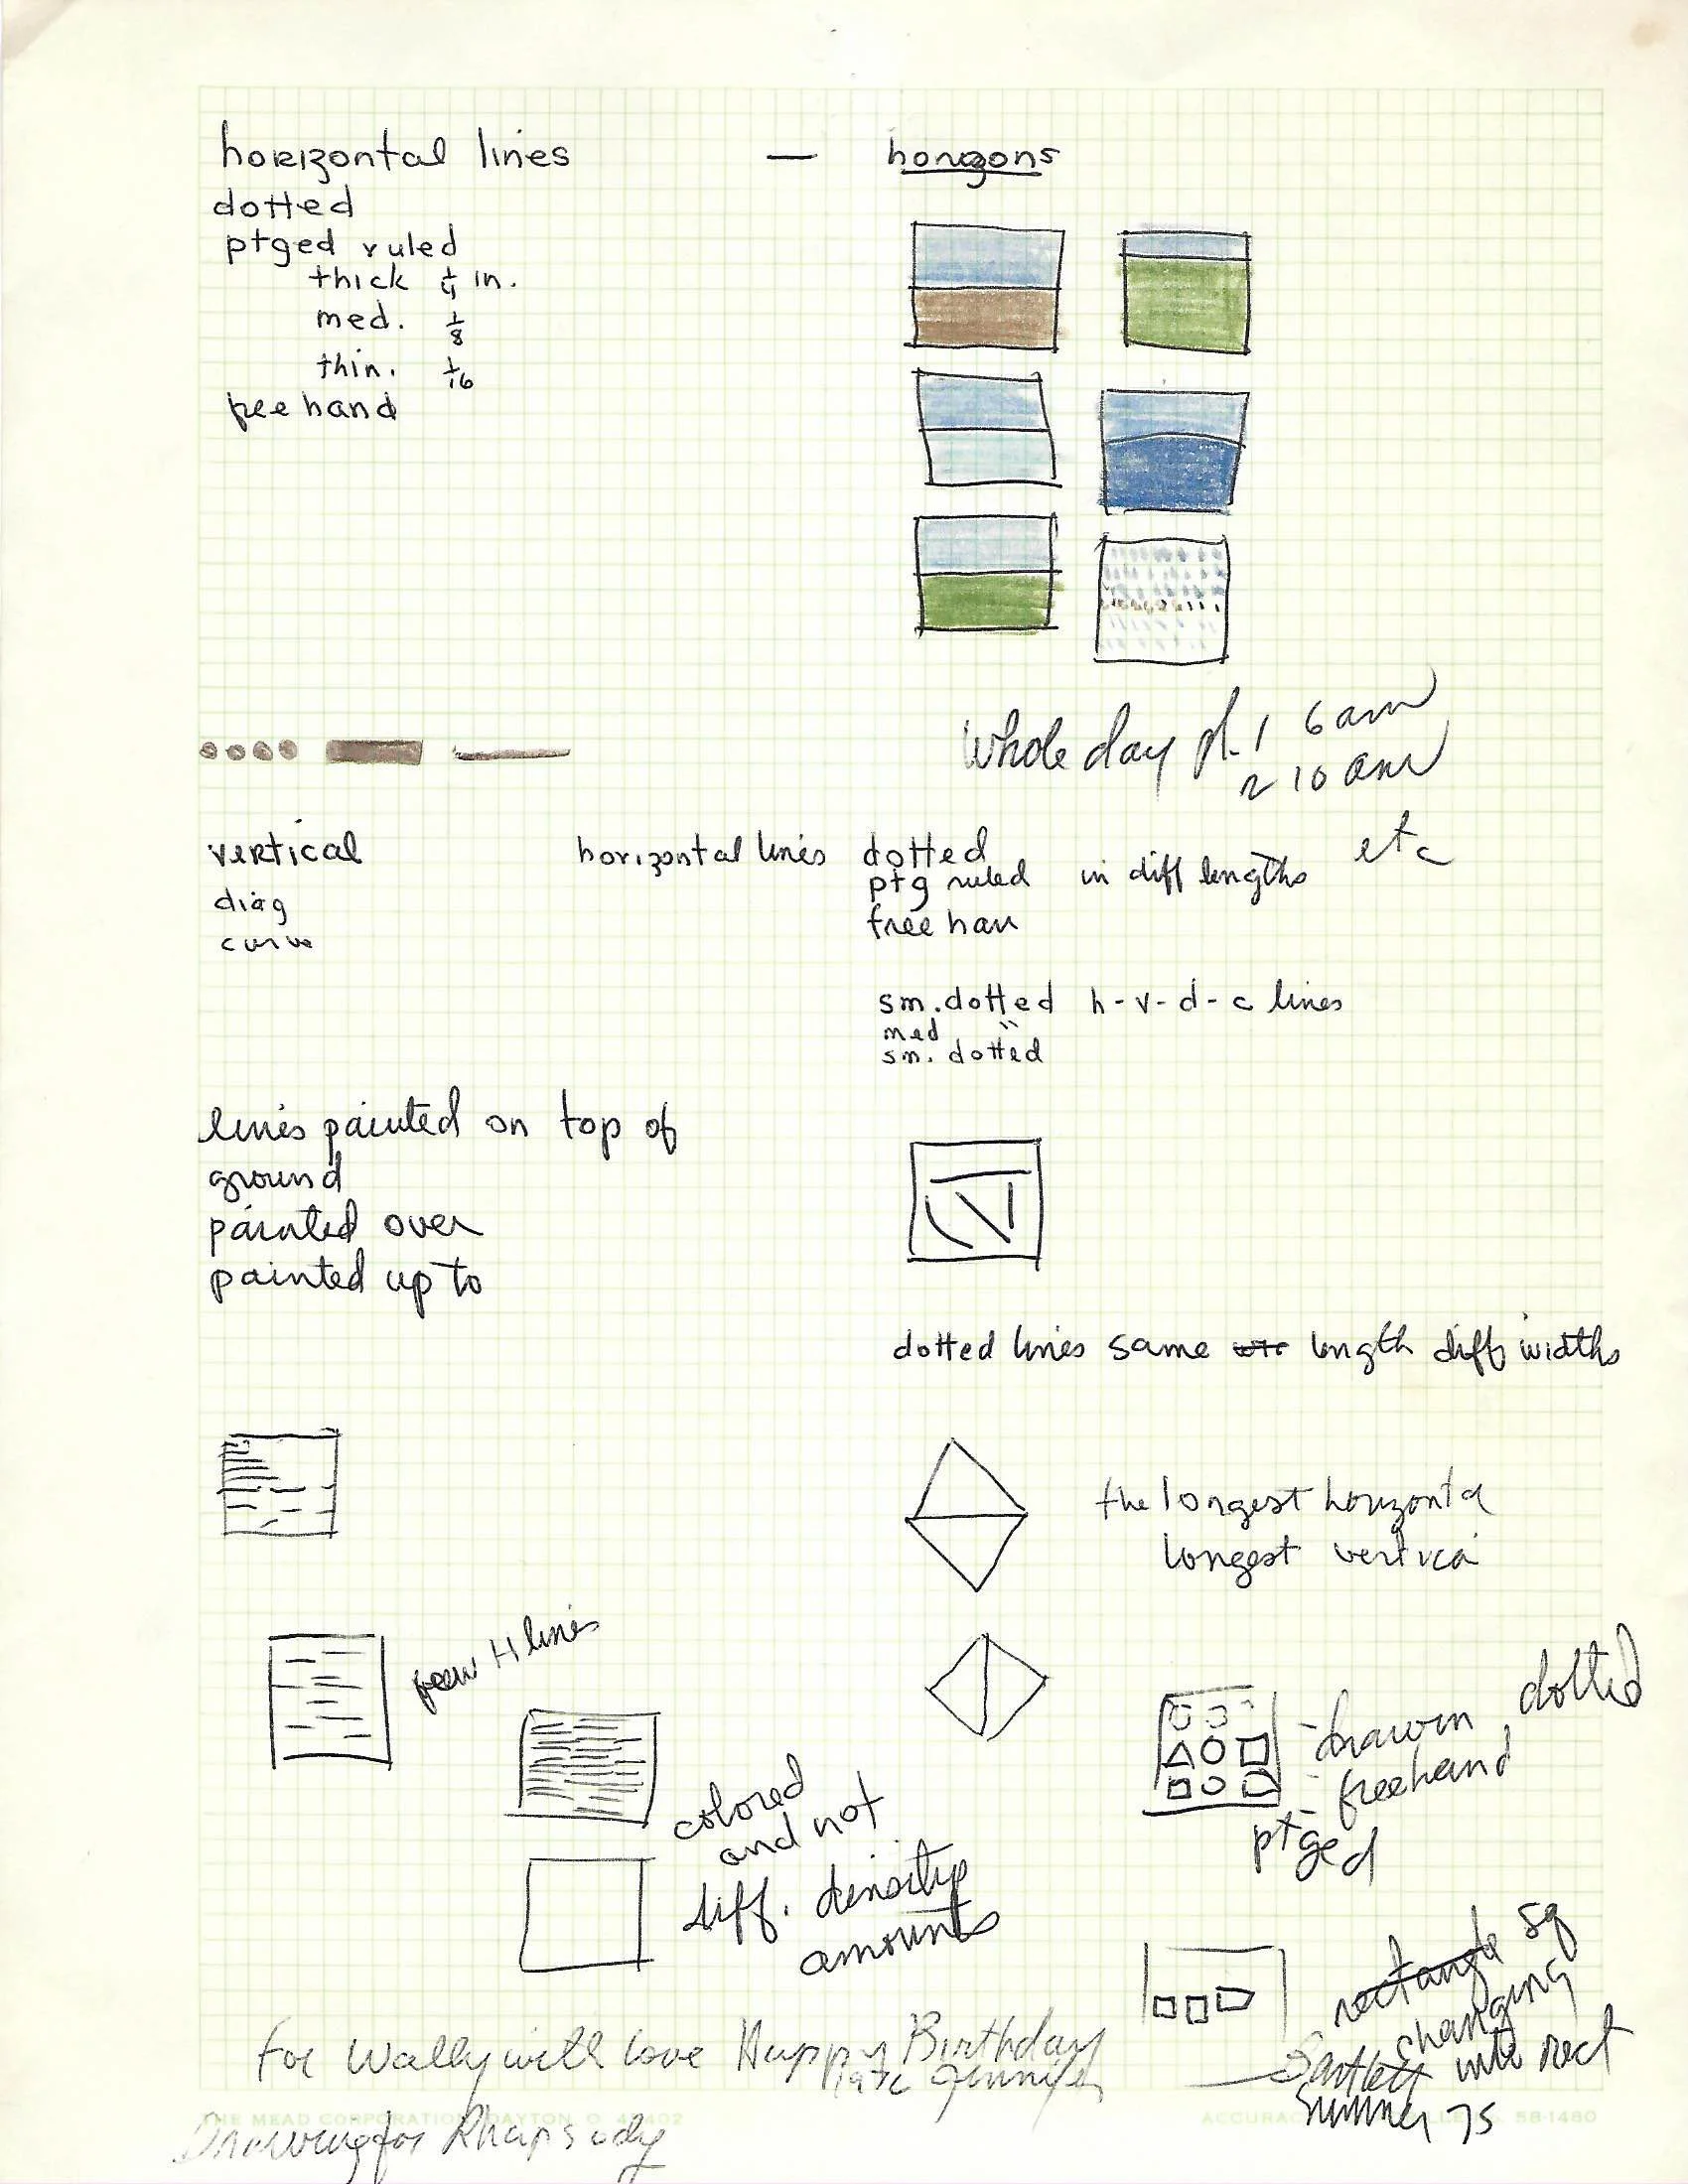 horizontal lines — horizons
dotted
ptged ruled
thick 1/4 in.
med. 1/8
thin. 1/16
freehand
Whole day pl. 1 6am
2 10 am
etc
vertical
diag
curve
horizontal lines dotted
ptg ruled in diff lengths
free han
sm. dotted h-v-d-c lines
med "
sm. dotted
lines painted on top of
ground
painted over
painted up to
dotted lines same length diff widths
the longest horizonta
longest vertica
few H lines
colored
and not
diff. density
amounts
- drawn, dotted
- freehand
ptged
rectangle sq
changing
into rect
Bartlett
Summer 75
For Wally with love Happy Birthday
1976 Jennifer
Drawing for Rhapsody
THE MEAD CORPORATION, DAYTON, O. 45402
58-1480